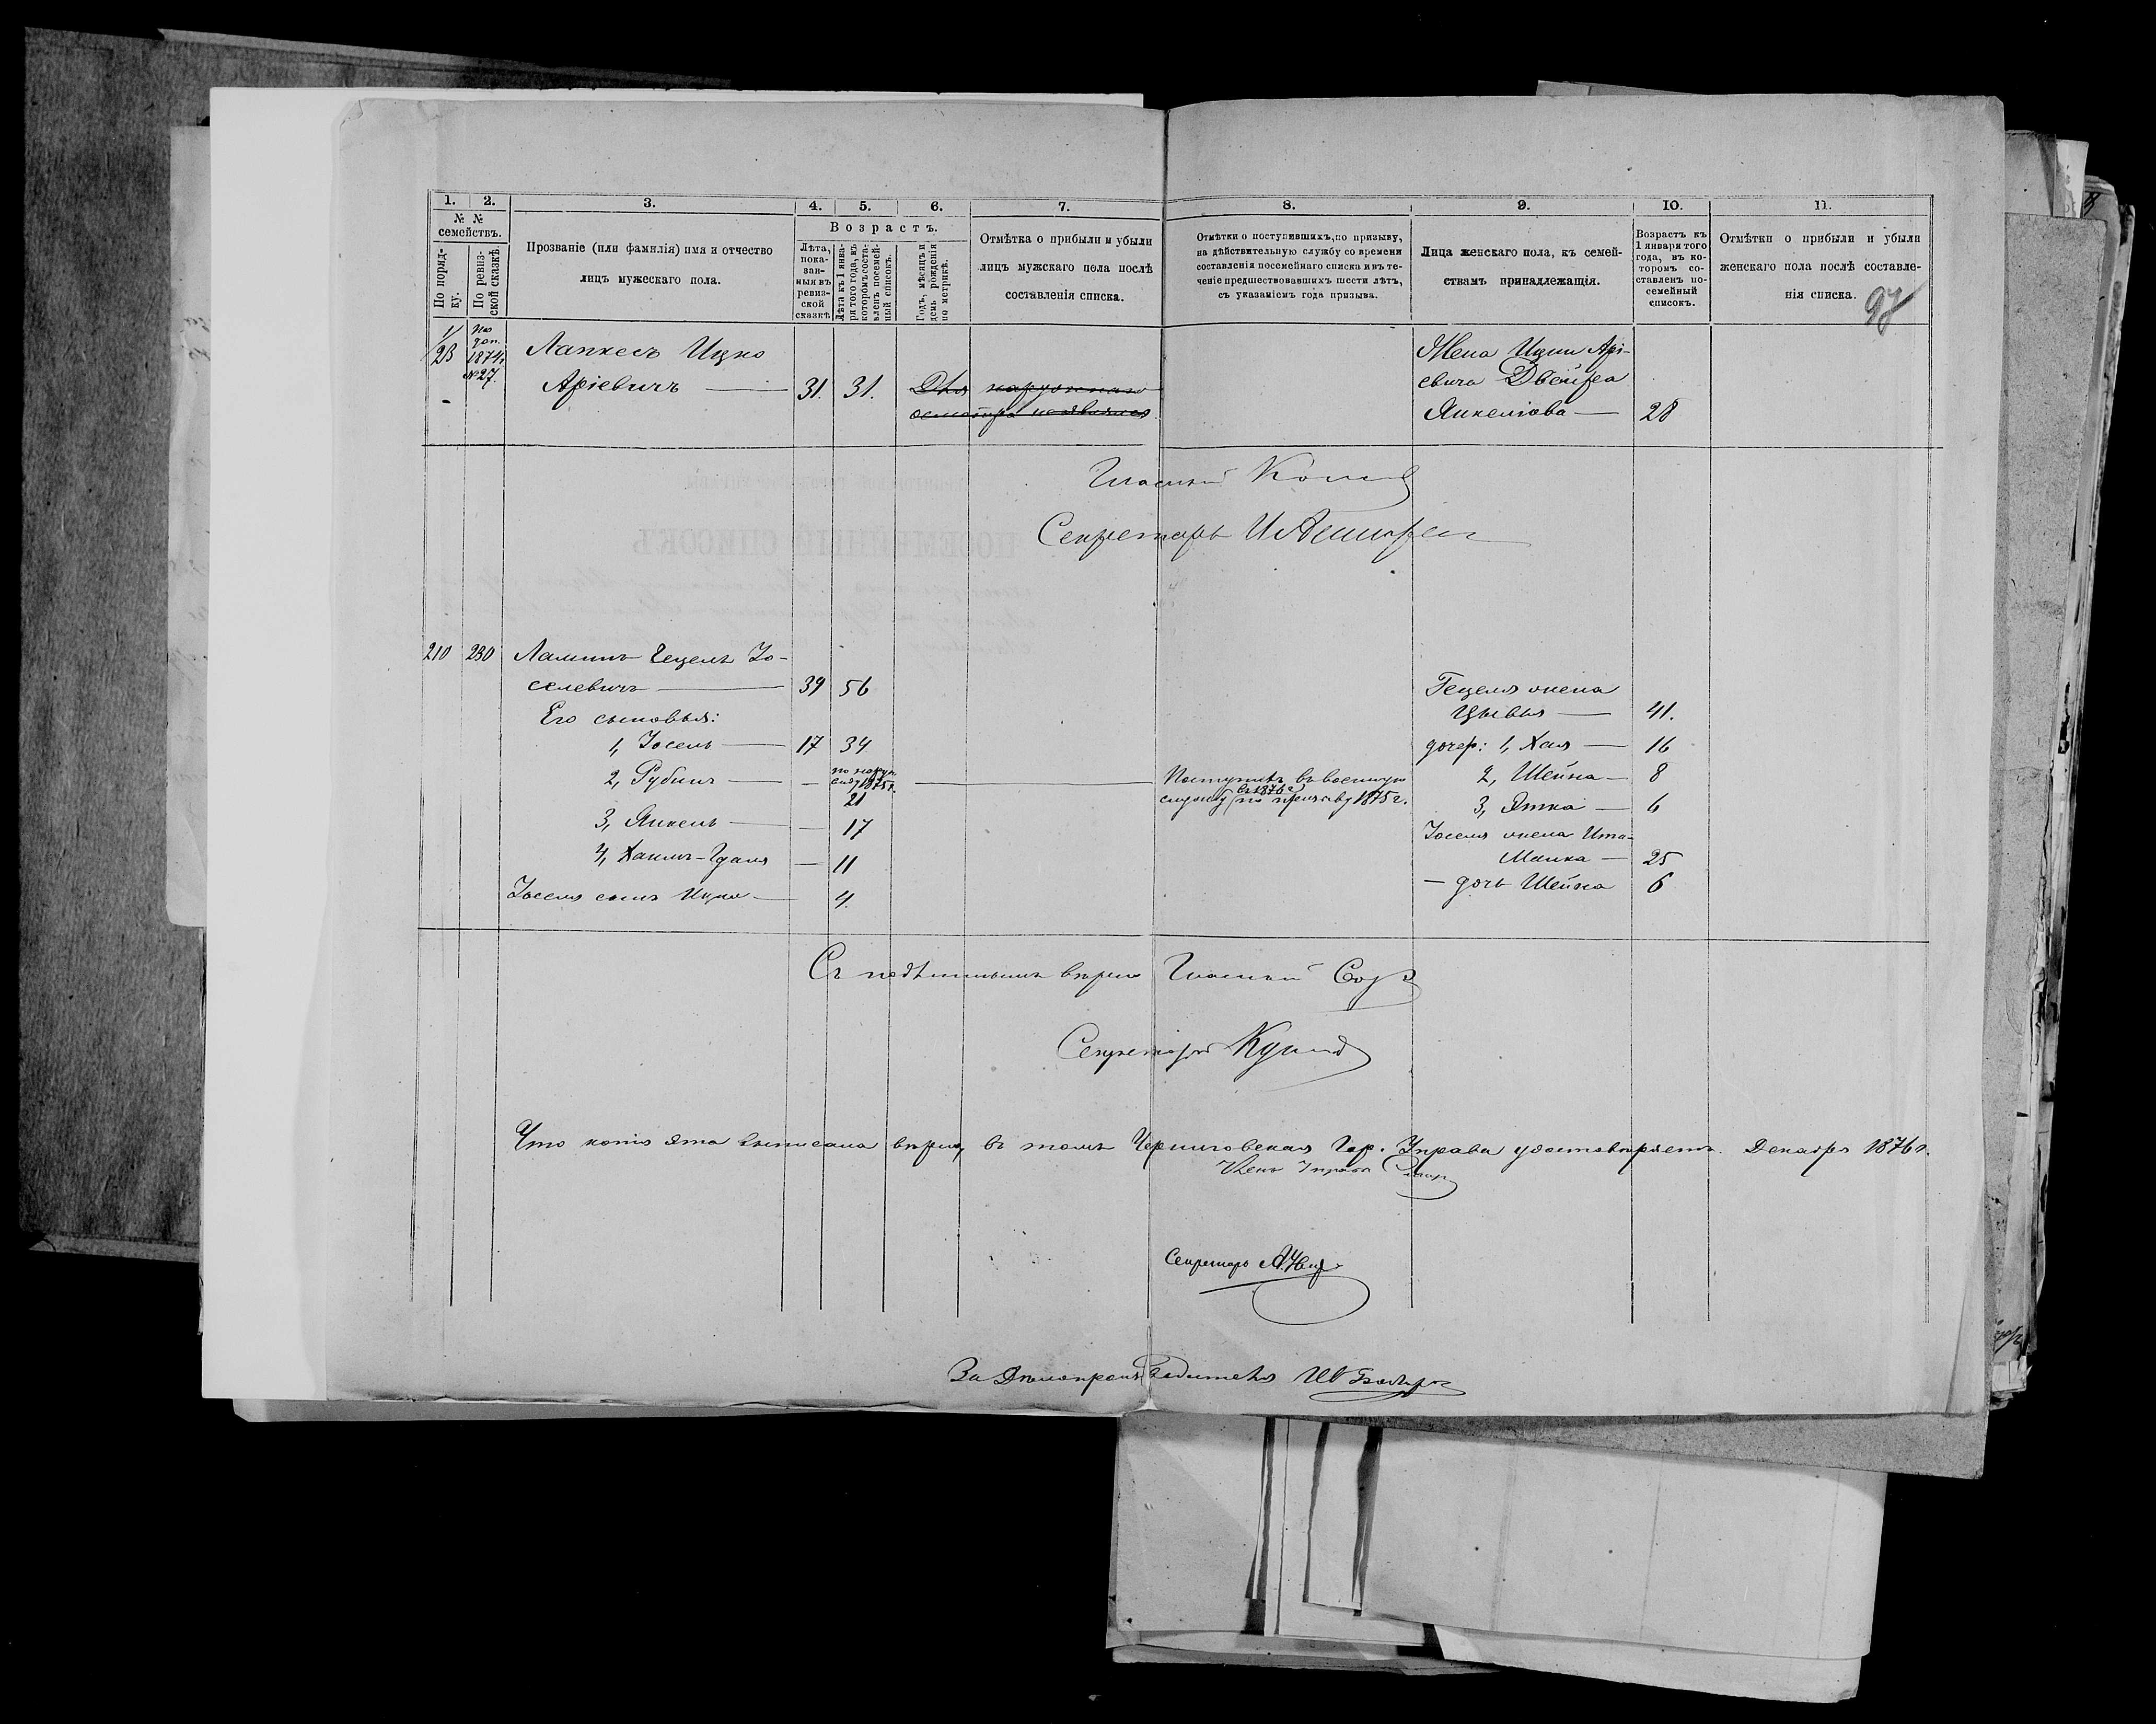 1. 2. 3. 4. 5. 6. 7. 8. 9. 10. 11.
№ № семействъ.
По поряд-
ку.
По ревиз-
ской сказкѣ.
Прозваніе (или фамилія) имя и отчество
лицъ мужескаго пола.
Возрастъ.
Лѣта,
пока-
зан-
ныя въ
ревиз-
ской
сказкѣ
Лѣта къ 1 янва-
ря того года, въ
которомъ соста-
вленъ посемей-
ный списокъ.
Годъ, мѣсяцъ и
день рожденія
по метрикѣ.
Отмѣтка о прибыли и убыли
лицъ мужскаго пола послѣ
составленія списка.
Отмѣтки о поступившихъ, по призыву,
на дѣйствительную службу со времени
составленія посемейнаго списка и въ те-
ченіе предшествовавшихъ шести лѣтъ,
съ указаніемъ года призыва.
Лица женскаго пола, къ семей-
ствамъ принадлежащія.
Возрастъ къ
1 января того
года, въ ко-
торомъ со-
ставленъ по-
семейный
списокъ.
Отмѣтки о прибыли и убыли
женскаго пола послѣ составле-
нія списка.
97
По
доп.
1874г.
№27.
Лапкесъ Ицко
Аріевичъ — 31. 31.
Для наружнаго
осмотра не явился
Жена Ицки Арі-
евича Двейра
Янкелiова — 28
Гласный
Секретарь
ПОСЕМЕЙНЫЙ СПИСОКЪ
210 230 Лампинъ Гецель Іо-
селевичъ — 39 56
Его сыновья:
1, Іосель — 17 34
2, Рубинъ — — по наруж.
виду 1875г.
21
Поступилъ въ военную
въ 1876 г.
службу по призыву 1875 г.
3, Янкель — — 17
4, Хаимъ-Гдаля — 11
Іоселя сынъ Ицко — 4.
Гецеля жена
Цывья — 41.
дочер: 1, Хая — 16
2, Шейна — 8
3, Этка — 6
Іоселя жена Ита-
Малка — 25
— дочь Шейна 6
Съ подлиннымъ вѣрно Гласный
Секретарь
Что копія эта выписана вѣрно, въ томъ Черниговская Гор. Управа удостовѣряетъ. Декабря 1876 г.
Членъ Управы
Секретарь
За Дѣлопроизводителя